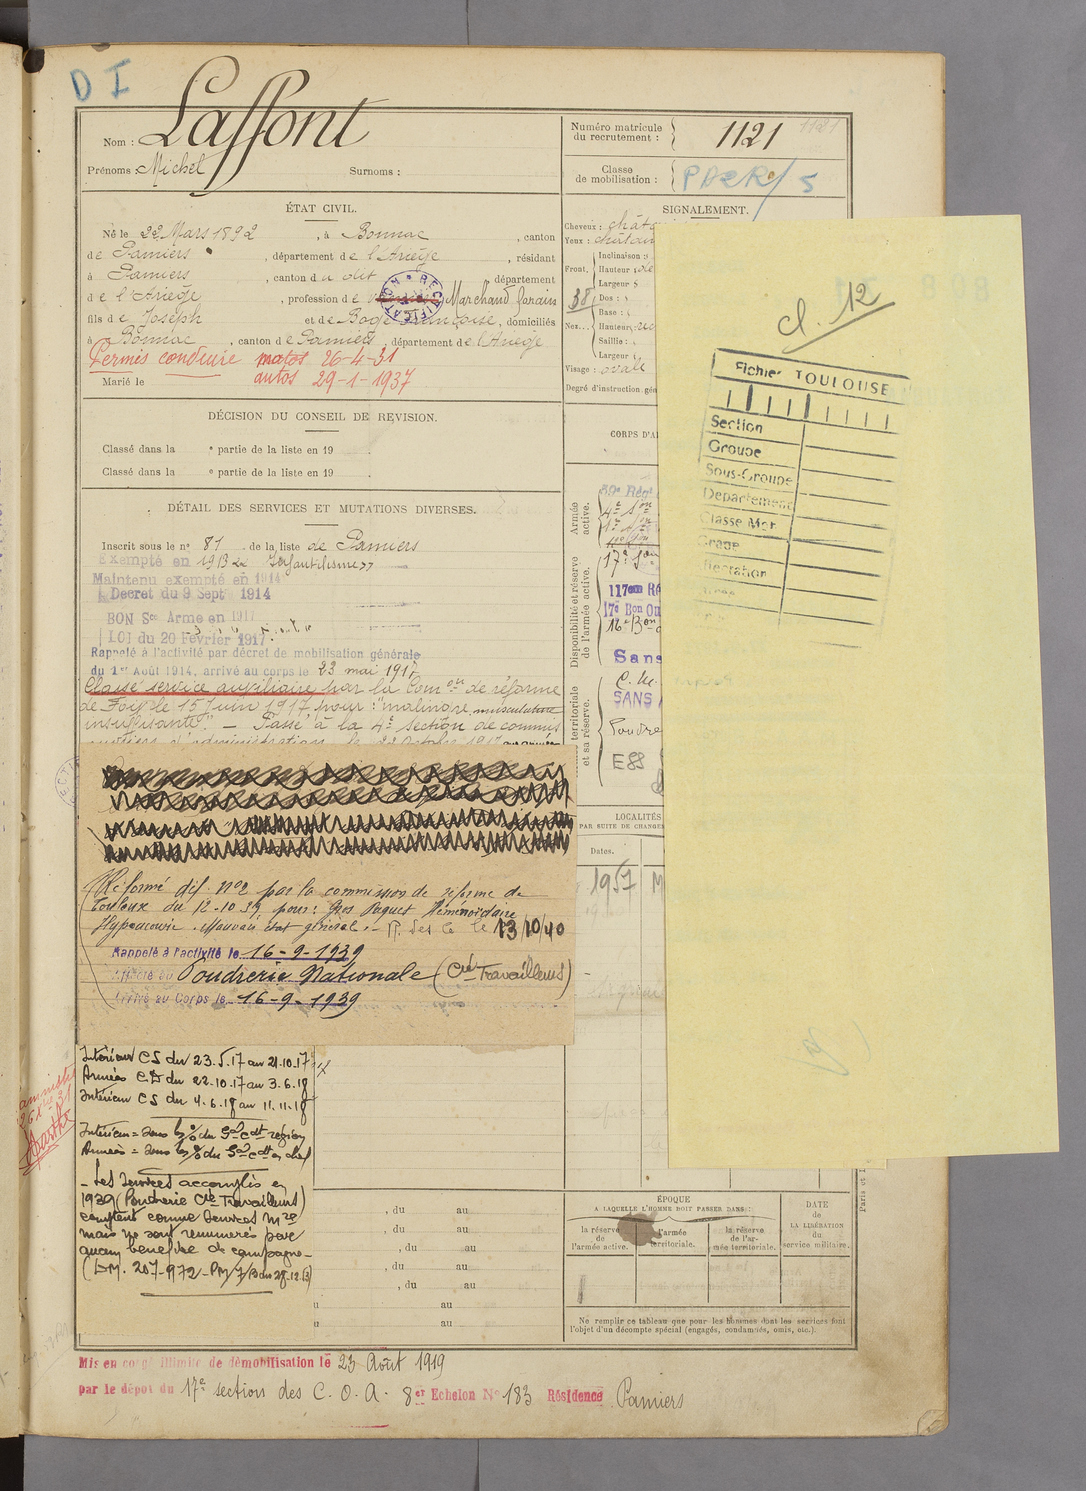 D I
Nom : Laffont
Prénoms : Michel Surnoms :
Numéro matricule
du recrutement : 1121
1121
Classe
de mobilisation :
ÉTAT CIVIL.
Né le 22 Mars 1892, à Bonnac, canton
de Pamiers, département de l'Ariège, résidant
à Pamiers, canton du dit, département
de l'Ariège, profession de Marchand forain
fils de Joseph et de Boge Françoise, domiciliés
à Bonnac, canton de Pamiers, département de l'Ariège
RECTIFICATION
Permis conduire motos 26-4-31
Marié le autos 29-1-1937
SIGNALEMENT.
Cheveux : châtai
Yeux : châtain
Front.
Inclinaison :
Hauteur :
Largeur :
38
Nez...
Dos :
Base :
Hauteur :
Saillie :
Largeur :
Visage : ovale
Degré d'instruction gén
DÉCISION DU CONSEIL DE REVISION.
Classé dans la e partie de la liste en 19 .
Classé dans la e partie de la liste en 19 .
DÉTAIL DES SERVICES ET MUTATIONS DIVERSES.
Inscrit sous le n° 81 de la liste de Pamiers
Exempté en 1913
Maintenu exempté en 1914
Décret du 9 Sept 1914
BON Sce Armé en 1917
LOI du 20 Février 1917
Rappelé à l'activité par décret de mobilisation générale
du 1er Août 1914, arrivé au corps le 23 mai 1917
Classé service auxiliaire par la Comon de réforme
de Foix le 15 Juin 1917 pour : "malingre, musculature
insuffisante". — Passé à la 4e section de commis
CORPS D'A
Armée
active.
59e Régt
Disponibilité et réserve
de l'armée active.
17e Son
117eme Ré
17e Bon Ou
16e Bon
Sans
territoriale
et sa réserve.
C. M.
SANS
Poudre
E88
LOCALITÉS
PAR SUITE DE CHANGE
Dates.
1957 M
Réformé déf. n°2 par la commission de réforme de
Toulouse du 12-10-39, pour : Gros Paquet Hémorroïdaire
Hypoacousie. Mauvais état général. 13/10/40
Rappelé à l'activité le 16-9-1939
Affecté au Poudrerie Nationale (Cie Travailleurs)
Arrivé au Corps le 16-9-1939
Intérieur CS du 23.5.17 au 21.10.17
Armées C.D du 22.10.17 au 3.6.18
Intérieur CS du 4.6.18 au 11.11.18
Intérieur = sous les o/ du Gal Cdt région
Armées = sous les o/ du Gal Cdt en chef
— Les services accomplis en
1939 (Poudrerie Cie Travailleurs)
comptent comme services Mre
mais ne sont rémunérés par
aucun bénéfice de campagne —
(DM. 207-972-PM/7/B du 28.12.13)
, du au
, du au
, du au
, du au
, du au
u au
u au
ÉPOQUE
A LAQUELLE L'HOMME DOIT PASSER DANS :
la réserve
de
l'armée active.
l'armée
territoriale.
la réserve
de l'ar-
mée territoriale.
DATE
de
LA LIBÉRATION
du
service militaire.
Ne remplir ce tableau que pour les hommes dont les services font
l'objet d'un décompte spécial (engagés, condamnés, omis, etc.).
Mis en congé illimité de démobilisation le 23 Août 1919
par le dépôt du 17e section des C. O. A. 8er Echelon N° 183 Résidence Pamiers
cl. 12
Fichier TOULOUSE
Section
Groupe
Sous-Groupe
Département
Classe Mor
Grade